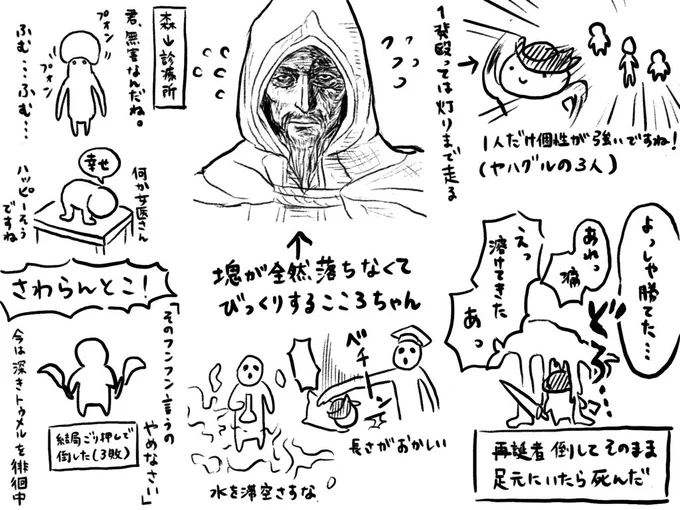 1発殴っては灯りまで走る
1人だけ個性が強いですね!
(ヤハグルの3人)
よっしゃ勝てた…
あれっ
痛
えっ
溶けてきた
あっ
どろ…
再誕者倒してそのまま
足元にいたら死んだ
塊が全然落ちなくて
びっくりするこころちゃん
ベチーン
長さがおかしい
水を滞空さすな
森山診療所
君、無害なんだね。
プォン
プォン
ふむ…ふむ…
何か女医さん
幸せ
ハッピーそう
ですね
さわらんとこ!
「そのフンフン言うの
やめなさい」
結局ごり押しで
倒した(3敗)
今は深きトゥメルを徘徊中